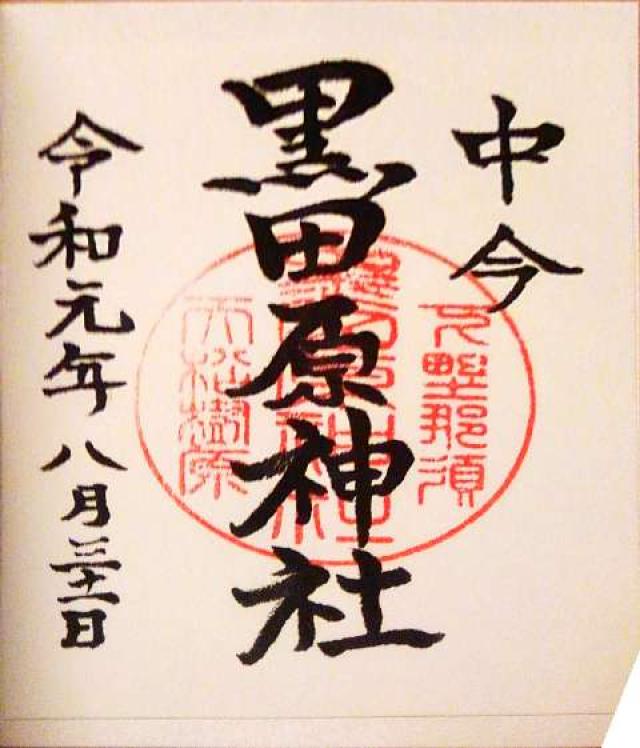 中今
那須
黒田原神社
令和元年八月三十一日